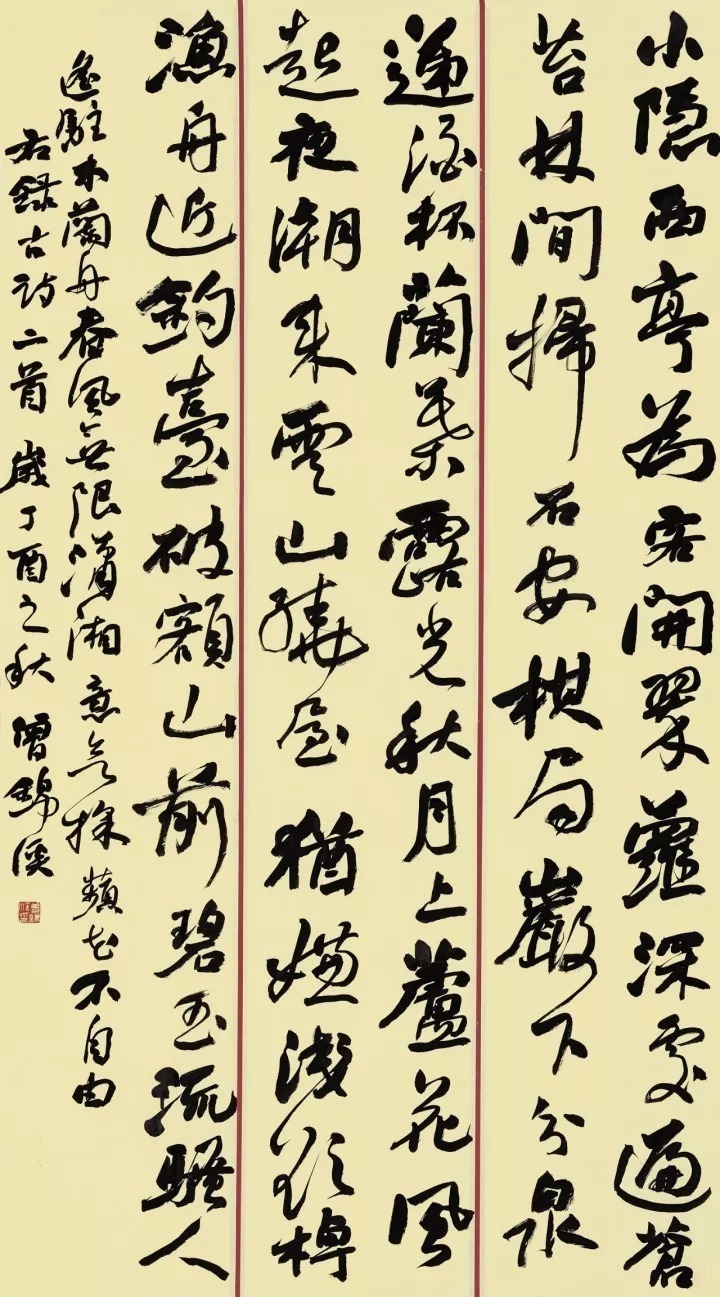 小隱西亭為客開翠蘿深處遍蒼
苔林間掃石安棋局巖下分泉
遞酒杯蘭葉露光秋月上蘆花風
起夜潮來雲山繞屋猶嫌淺欲棹
漁舟近釣臺破額山前碧玉流騷人
遙駐木蘭舟春風無限瀟湘意欲採蘋花不自由
右錄古詩二首 歲丁酉之秋 曾錦溪